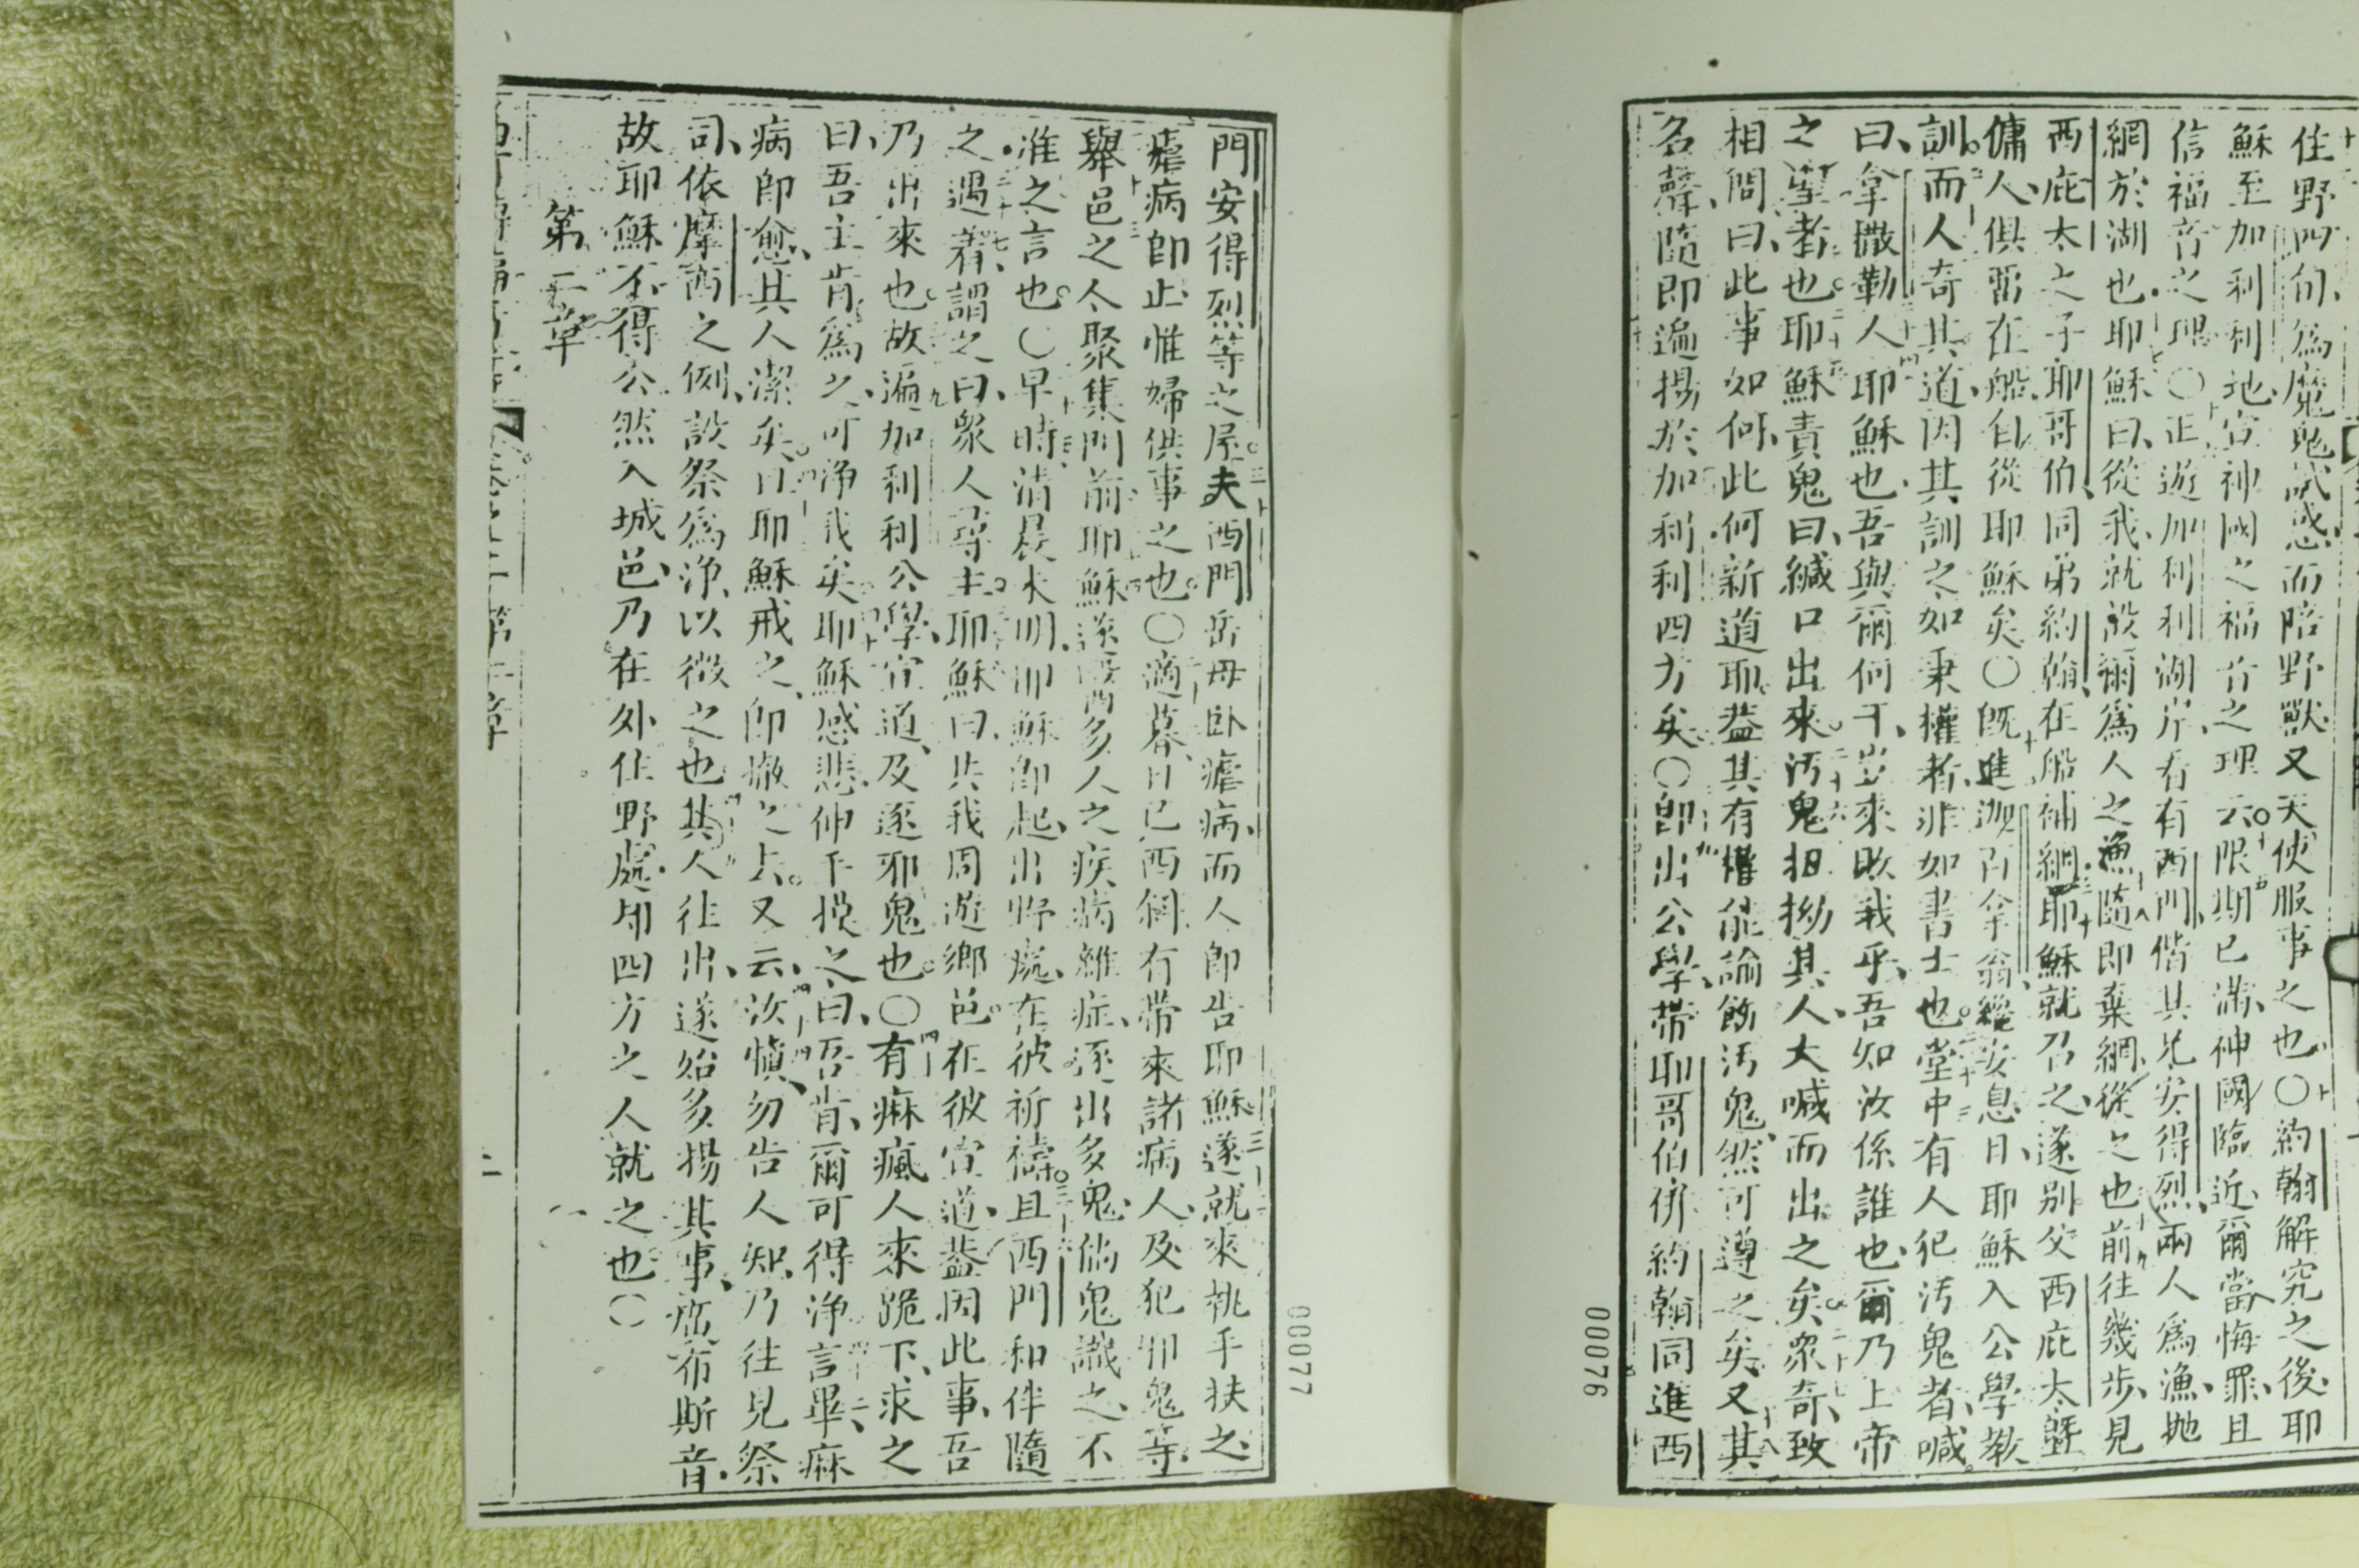 住野四旬、為魔鬼試惑、而陪野獸、又天使服事之也〇約翰解究之後、耶
穌至加利利地、宣神國之福音之理、云限期已滿、神國臨近、爾當悔罪、且
信福音之理〇正遊加利利湖岸、有西門、偕其兄安得烈、兩人為漁、拋
網於湖也耶穌曰、從我、就設爾為人之漁隨即棄網、從之也前往幾步、見
西庇太之子耶哥伯、同弟約翰、在船補網耶穌就召之、遂別父西庇太曁
傭人、俱留在船、自從耶穌矣〇既進迦百拿翁、纔安息日、耶穌入公學教
訓而人奇其道、因其訓之如秉權者、非如書士也堂中有人犯汚鬼者、喊
曰、拿撒勒人耶穌也、吾與爾何干、豈來敗我乎、吾知汝係誰也、爾乃上帝
之聖者也耶穌責鬼曰、緘口出來汚鬼扭拗其人、大喊而出之矣眾奇、致
相問曰、此事如何、此何新道耶、蓋其有權能諭飭汚鬼、然可遵之矣又其
名聲、隨即遍揚於加利利四方矣〇卽出公學、帶耶哥伯併約翰同進西
00076
門安得烈等之屋夫西門岳母卧瘧病、而人卽告耶穌遂就來挑手扶之、
瘧病卽止、惟婦供事之也〇適暮、日已西斜有帶來諸病人、及犯邪鬼等、
舉邑之人聚集門前耶穌遂醫多人之疾病雜症、逐出多鬼、倘鬼識之、不
准之言也〇早時清晨未明、耶穌卽起、出野處、在彼祈禱且西門和伴隨
之遇着、謂之曰、眾人尋主、耶穌曰共我周遊鄉邑在彼宣道、蓋因此事、吾
乃出來也故遍加利利公學、宣道、及逐邪鬼也〇有痳瘋人來跪下、求之
曰、吾主肯為之、可净我矣耶穌感悲、伸手摸之曰、吾肯、爾可得净言畢、痳
病卽愈、其人潔矣耶穌戒之、卽撤之去又云、汝愼、勿告人知、乃往見祭
司、依摩西之例、設祭為净、以徵之也其人往出、遂始多揚其事、痳布斯音
故耶穌不得公然入城邑、乃在外住野處、却四方之人就之也〇
第二章
00077